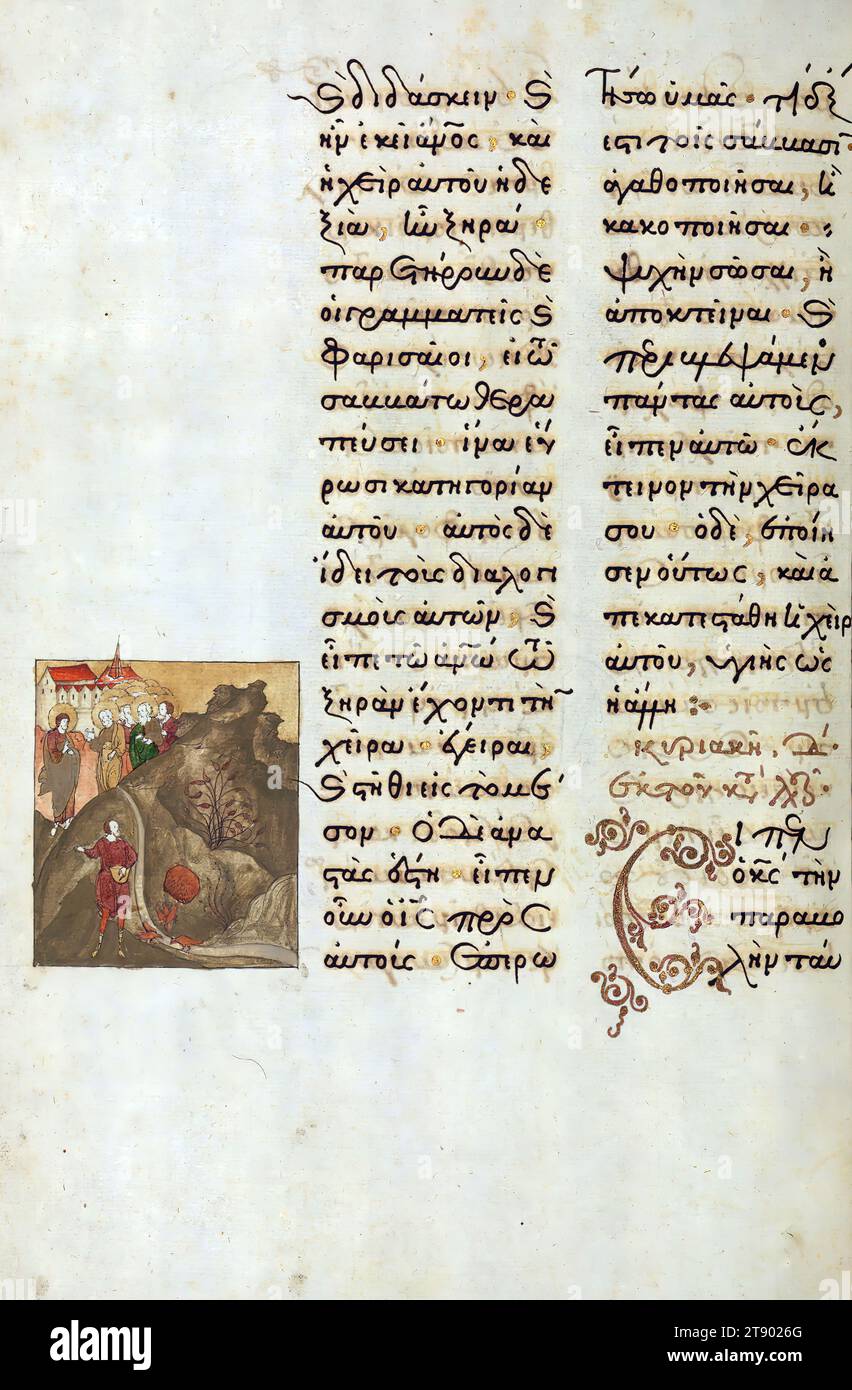 καὶ διδάσκειν · καὶ
ἦν ἐκεῖ ἄνος, καὶ
ἡ χεὶρ αὐτοῦ ἡ δε
ξιὰ, ἦν ξηρά ·
παρετήρουν δὲ
οἱ γραμματεῖς καὶ
φαρισαῖοι, εἰ ἐν τῶ
σαββάτω θερα
πεύσει · ἵνα εὕ
ρωσι κατηγορίαν
αὐτοῦ · αὐτὸς δὲ
ἤδει τοὺς διαλογι
σμοὺς αὐτῶν, καὶ
εἶπε τῶ ἀνω τῶ
ξηρὰν ἔχοντι τὴν
χεῖρα · ἔγειραι,
καὶ στῆθι εἰς τὸ μέ
σον · ὁ δὲ ἀνα
στὰς ἔστη · εἶπεν
οὖν ὁ ις πρὸς
αὐτούς · ἐπερω
τήσω ὑμᾶς · τί ἔξ
εστι τοῖς σάββασιν
ἀγαθοποιῆσαι, ἢ
κακοποιῆσαι ·
ψυχὴν σῶσαι, ἢ
ἀποκτεῖναι · καὶ
περιβλεψάμενος
πάντας αὐτοὺς,
εἶπεν αὐτῶ · ἔκ
τεινον τὴν χεῖρα
σου · ὁ δὲ, ἐποίη
σεν οὕτως, καὶ ἀ
πεκατεστάθη ἡ χεὶρ
αὐτοῦ, ὑγιὴς ὡς
ἡ ἄλλη :
κυριακῇ, Δ
ἐκ τοῦ κατὰ λουκᾶν
Εἶπεν
ὁ κς τὴν
παραβο
λὴν ταύ
alamy
Image ID: 2T9026G
www.alamy.com